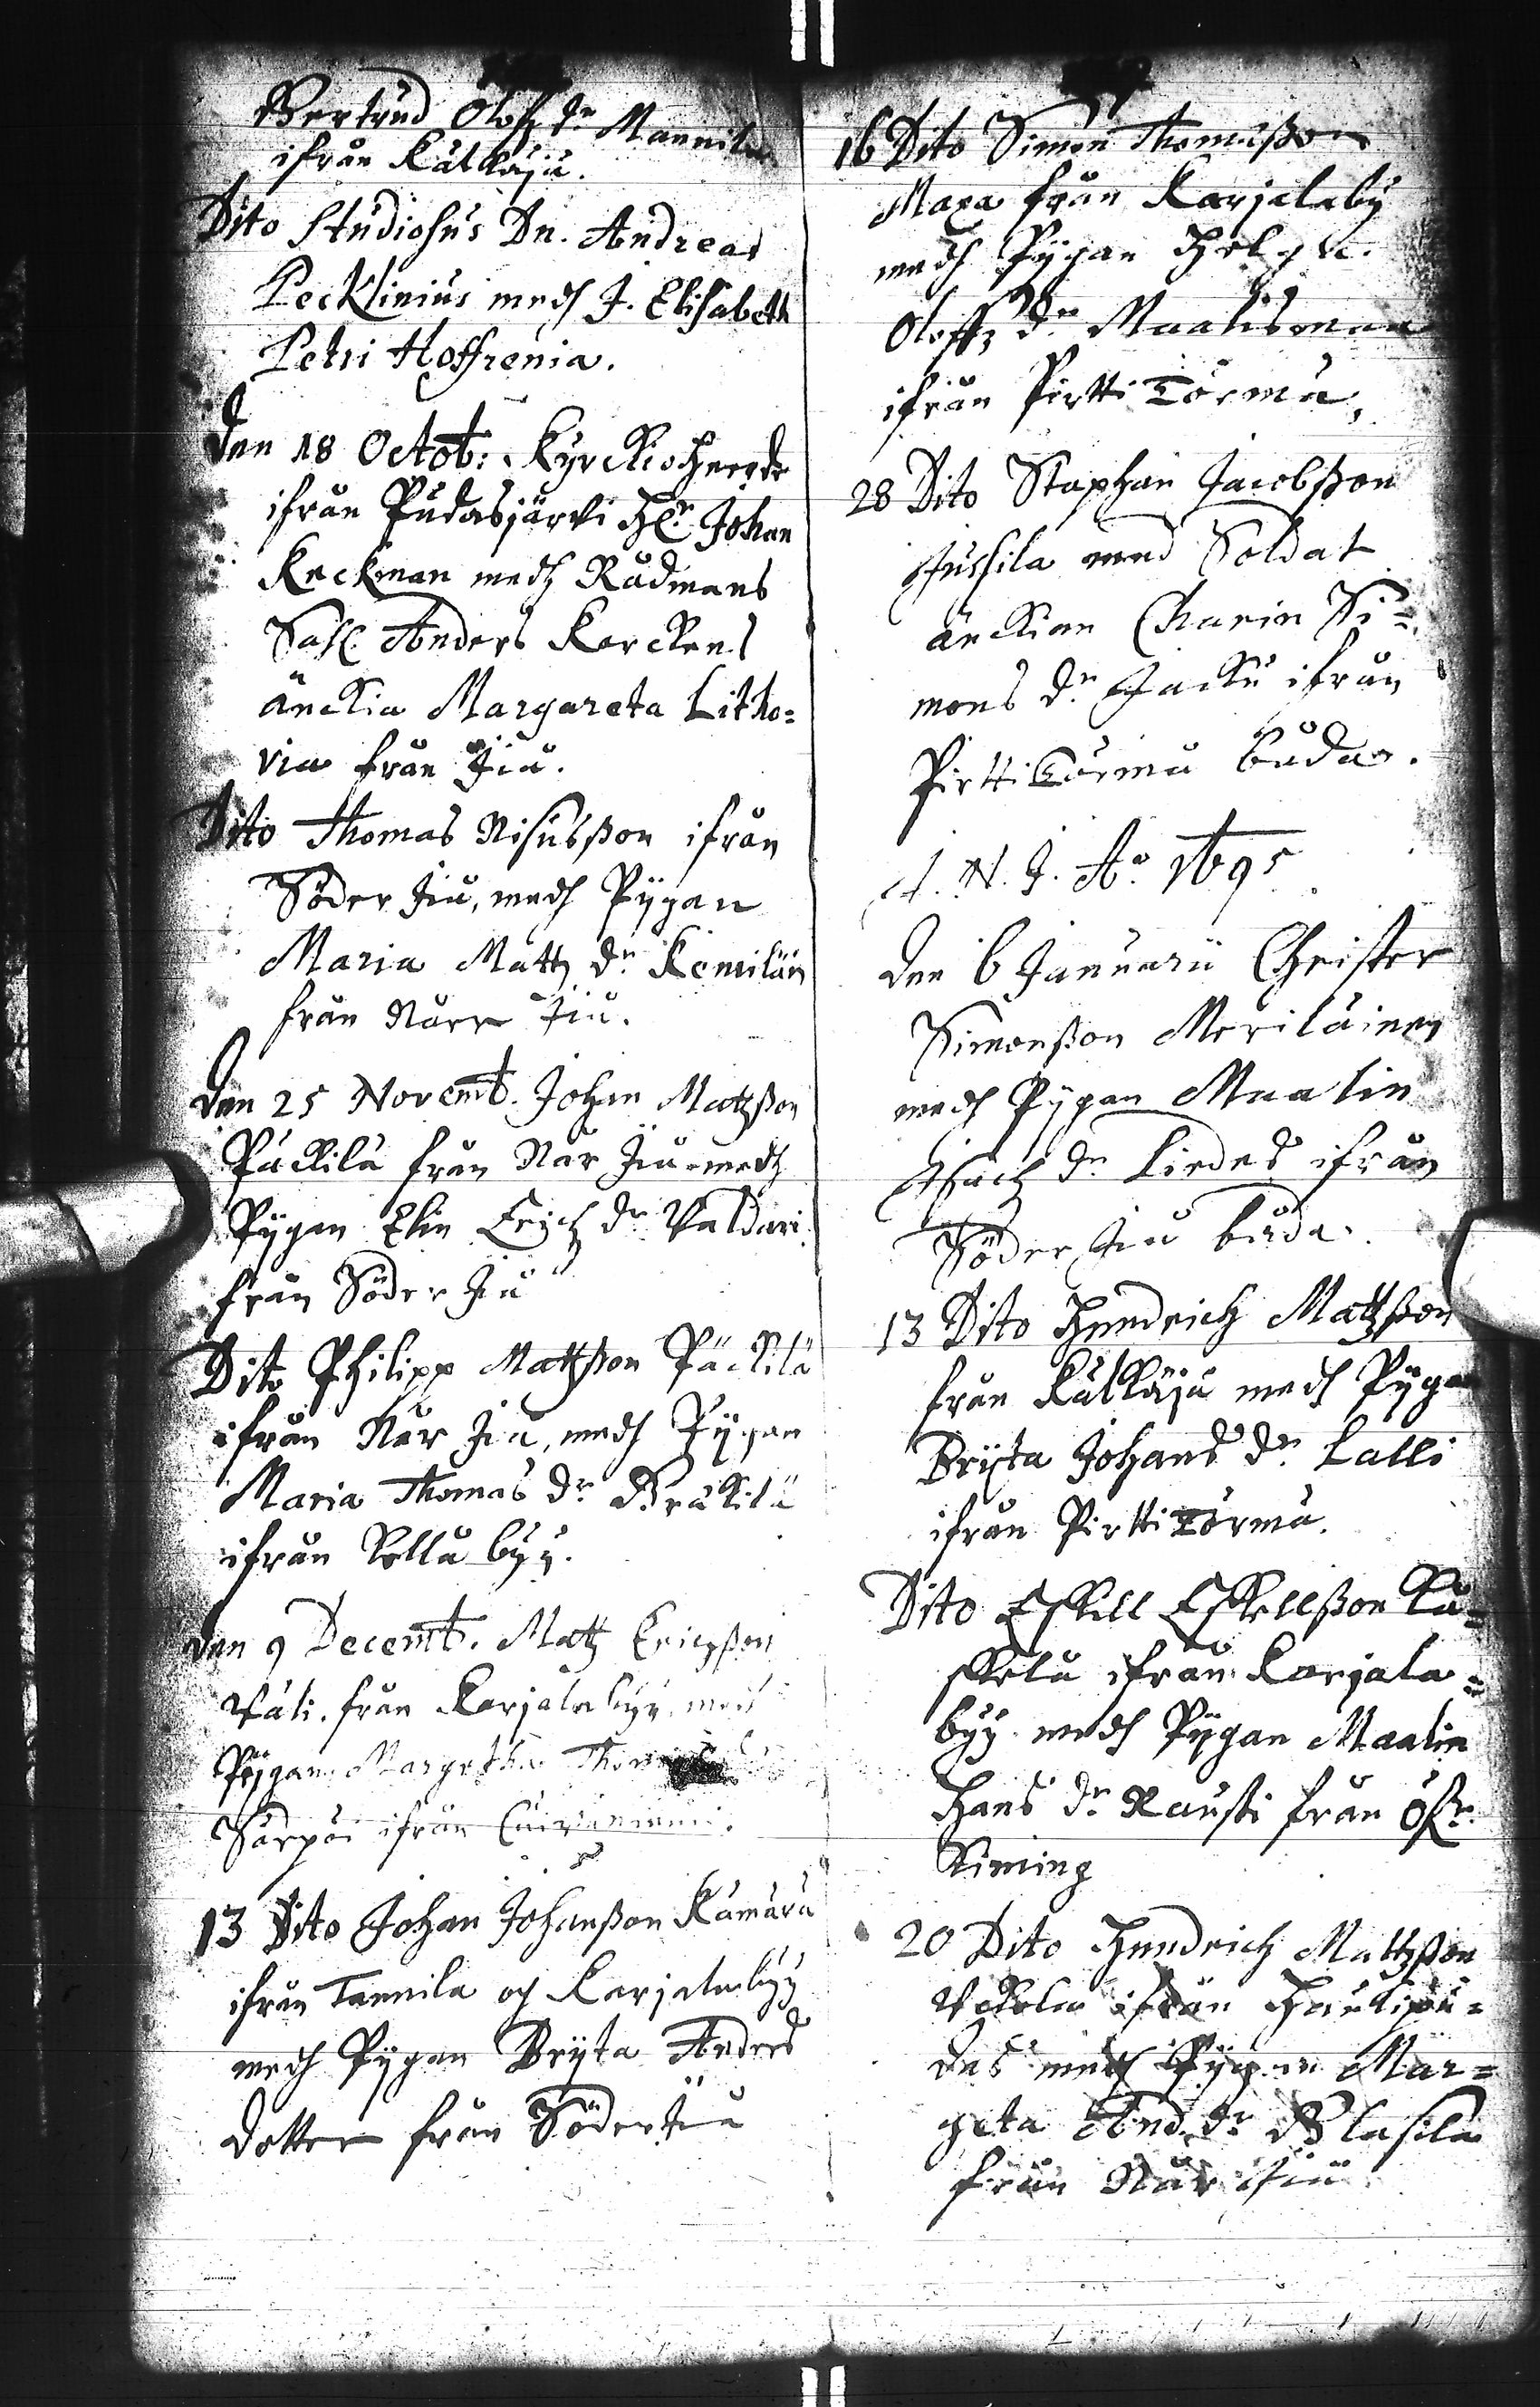 Gertrud Olofz dr Mannila
ifrån Kálkáju.
Dito Studiosus Dn. Andreas
Pecklinius medh J. Elisabeth
Petri Hoffrenia.
Den 18 Octob: Kyrckioherde
ifrån Pudasjärvi Hr. Johan
Keckman medh Rådmans
Sahl. Anders Korckens
änckia Margareta Litho=
via från Jiu.
Dito Thomas Nisusßon ifrån
Söder Jiu, medh Pygan
Maria Mattz dr Kemiläin
från Norr Jiu.
Den 25 Novemb. Johan Matzßon
Päckilä från Nor Jiu medh
Pygan Elin Erichz dr Valdari
från Söder Jiu
Dito Philipp Matzßon Päckilä
ifrån Nor Jiu, medh Pygan
Maria Thomas dr Bräkilä
ifrån Kello byy.
Den 9 Decemb. Matz Ericßon
Väli. från Karjalabyy medh
Pygan Margetha
Särpöi ifrån
13 Dito Johan Johanßon Kämärä
ifrån Tannila och Karjalabyy
medh Pygan Bryta Anders
dotter från Söder Jiu
16 Dito Simon Thomaßon
Maxa från Karjalaby
medh Pygan Helga
Oloffz dr Maalisman
ifrån Pirttitörmä,
28 Dito Staphan Jacobßon
Jussila med Soldat
änckian Charin Si=
mons dr Jacku ifrån
Pirttitörmä båda.
J. N. J. Ao 1695
Den 6 Januarii Christer
Simonßon Meriläinen
medh Pygan Maalin
Isachz dr Liedes ifrån
Söder Jiu båda.
13 Dito Hendrich Matzßon
från Kálkáju medh Pygan
Bryta Johans dr Lalli
ifrån Pirttitörmä.
Dito Eskill Eskellßon Ku=
skelu ifrån Karjala=
byy medh Pygan Maalin
Hans dr Rausti från Öfr.
Kiming
20 Dito Hendrich Mattzßon
Vckola ifrån Haukipu=
das medh Pygan Mar=
geta And. dr Blasila
från Nor Jiu